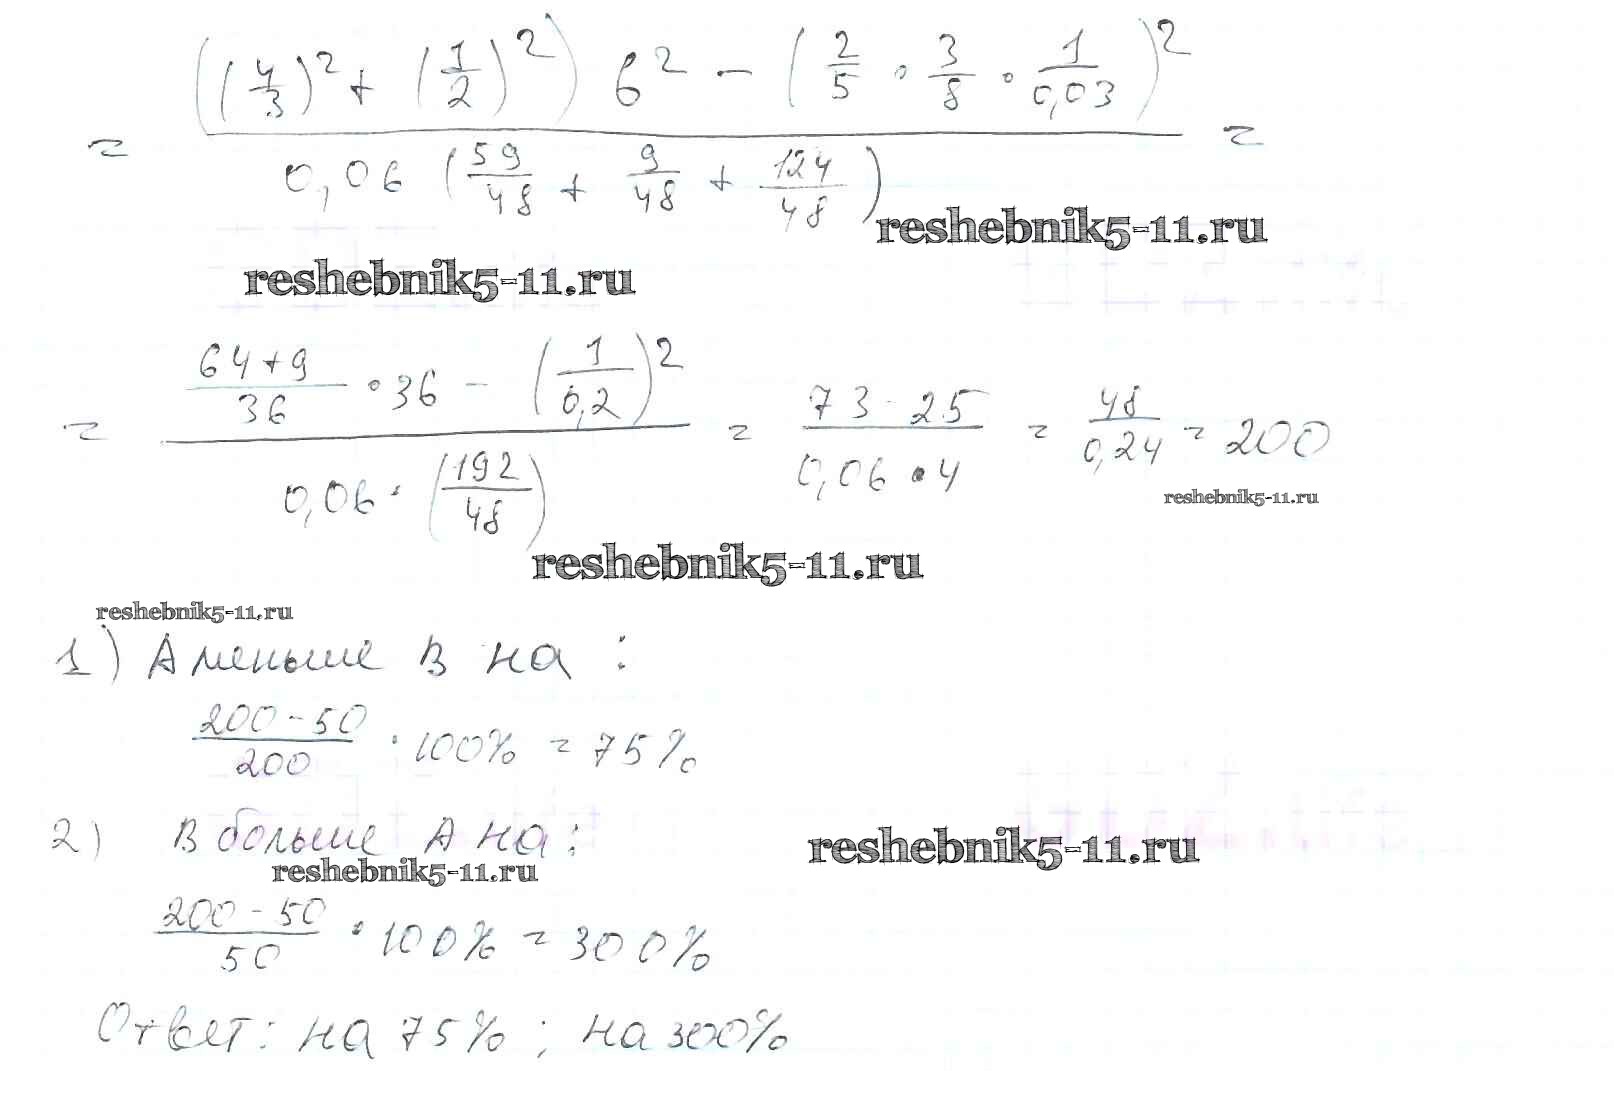 = ((4/3)² + (1/2)²) 6² - (2/5 · 3/8 · 1/0,03)² / 0,06 (59/48 + 9/48 + 124/48) =
reshebnik5-11.ru
reshebnik5-11.ru
= (64+9)/36 · 36 - (1/0,2)² / 0,06 · (192/48) = 73-25 / 0,06 · 4 = 48/0,24 = 200
reshebnik5-11.ru
reshebnik5-11.ru
reshebnik5-11.ru
1) А меньше В на :
200-50/200 · 100% = 75%
2) В больше А на :
reshebnik5-11.ru
reshebnik5-11.ru
200-50/50 · 100% = 300%
Ответ: на 75% ; на 300%